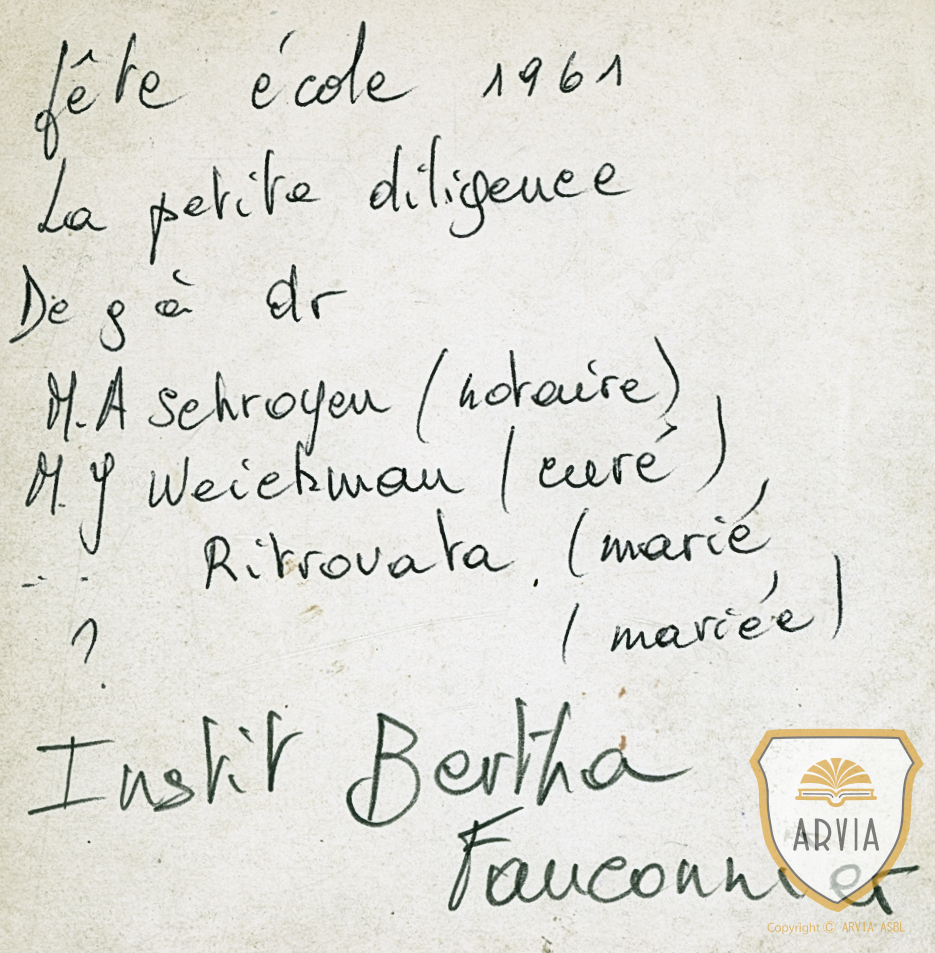 fête école 1961
La petite diligence
De g à dr
M.A Schroyen (notaire)
M. J Weickman (curé)
-- - Ritrovata. (marié)
? (mariée)
Instit Bertha
Fauconnier
ARVIA
Copyright © ARVIA ASBL